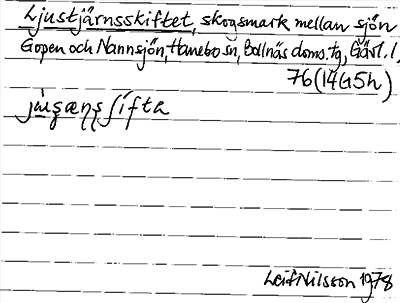 Ljustjärnsskiftet, skogsmark mellan sjön
Gopen och Nannsjön, Hanebo sn, Bollnäs doms. tg, Gävl. l,
76 (14G5h)
Leif Nilsson 1978